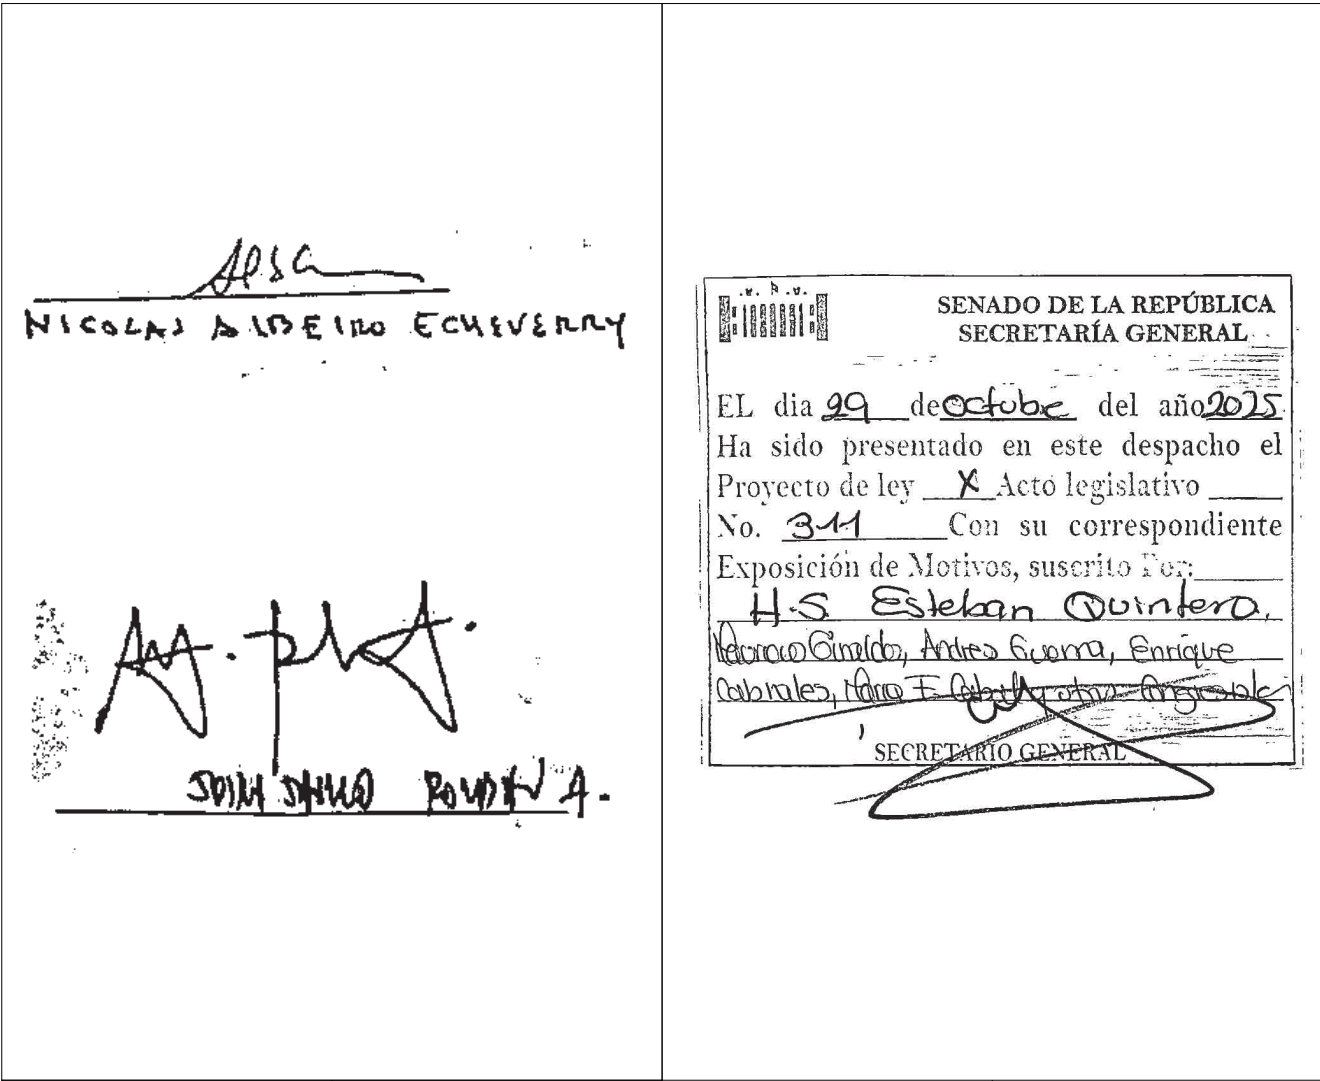 NICOLAS ALBEIRO ECHEVERRY
JOHN JAIRO ROLDAN A.
SENADO DE LA REPÚBLICA
SECRETARÍA GENERAL
EL dia 29 de octubre del año 2025
Ha sido presentado en este despacho el
Proyecto de ley X Acto legislativo
No. 311 Con su correspondiente
Exposición de Motivos, suscrito Por:
H.S. Esteban Quintero,
Giraldo, Andres Guerra, Enrique
Cabrales, Maria F. Cabal y otros Congresistas
SECRETARIO GENERAL